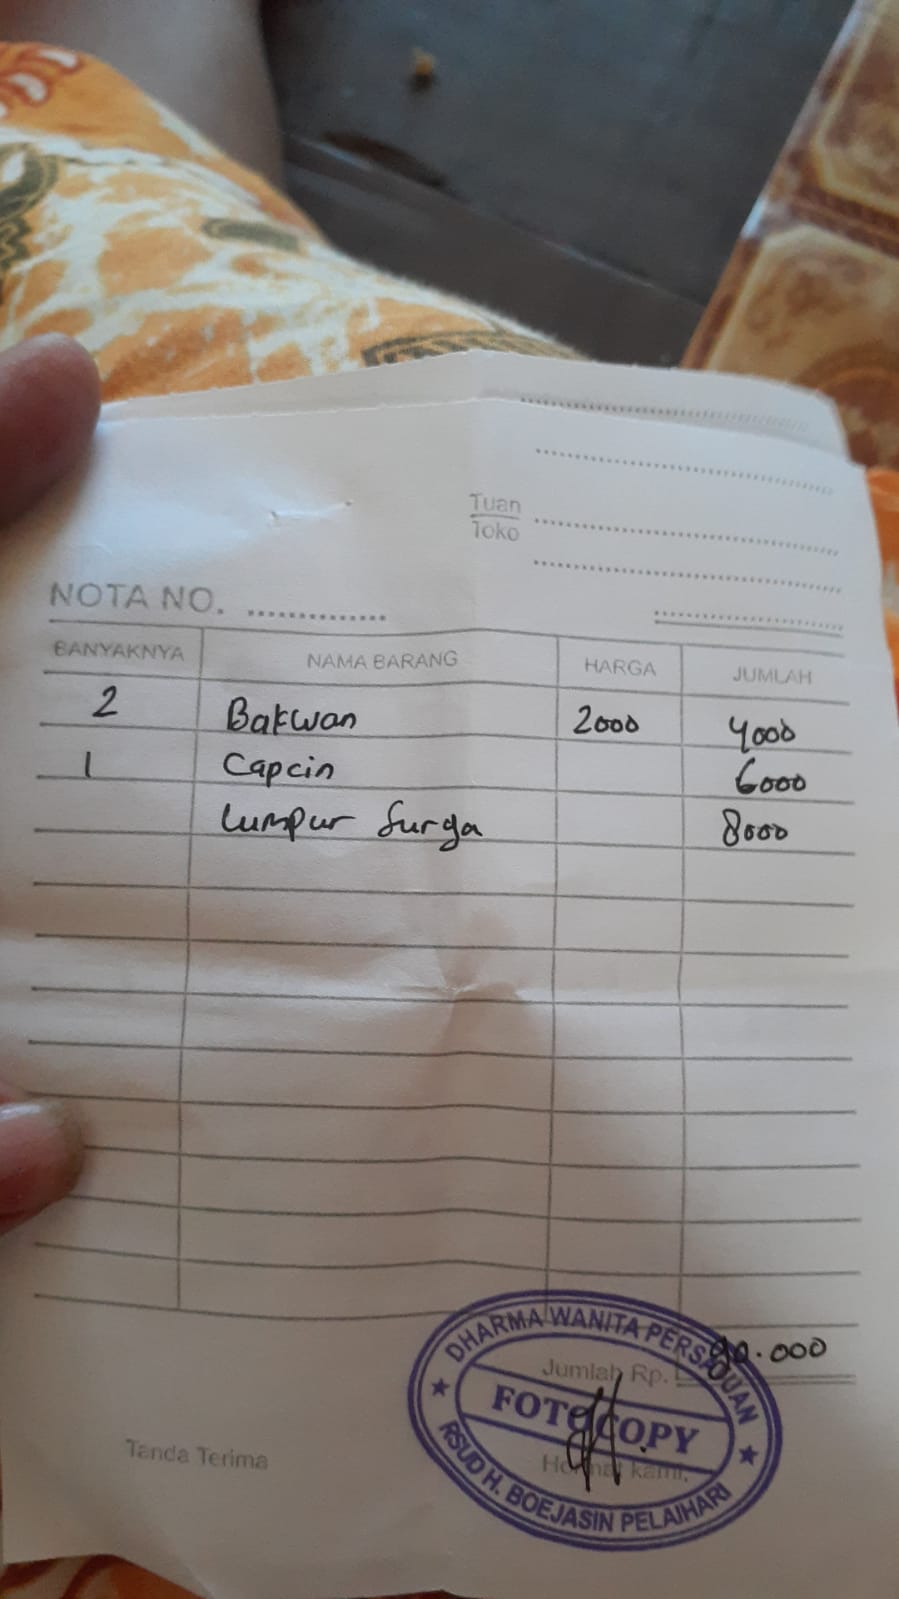 Tuan
Toko
NOTA NO. ..............
BANYAKNYA NAMA BARANG HARGA JUMLAH
2 Bakwan 2000 4000
1 Capcin 6000
Lumpur Surga 8000
Jumlah Rp.
DHARMA WANITA PERSATUAN
FOTOCOPY
RSUD H. BOEJASIN PELAIHARI
Tanda Terima
Hormat kami,